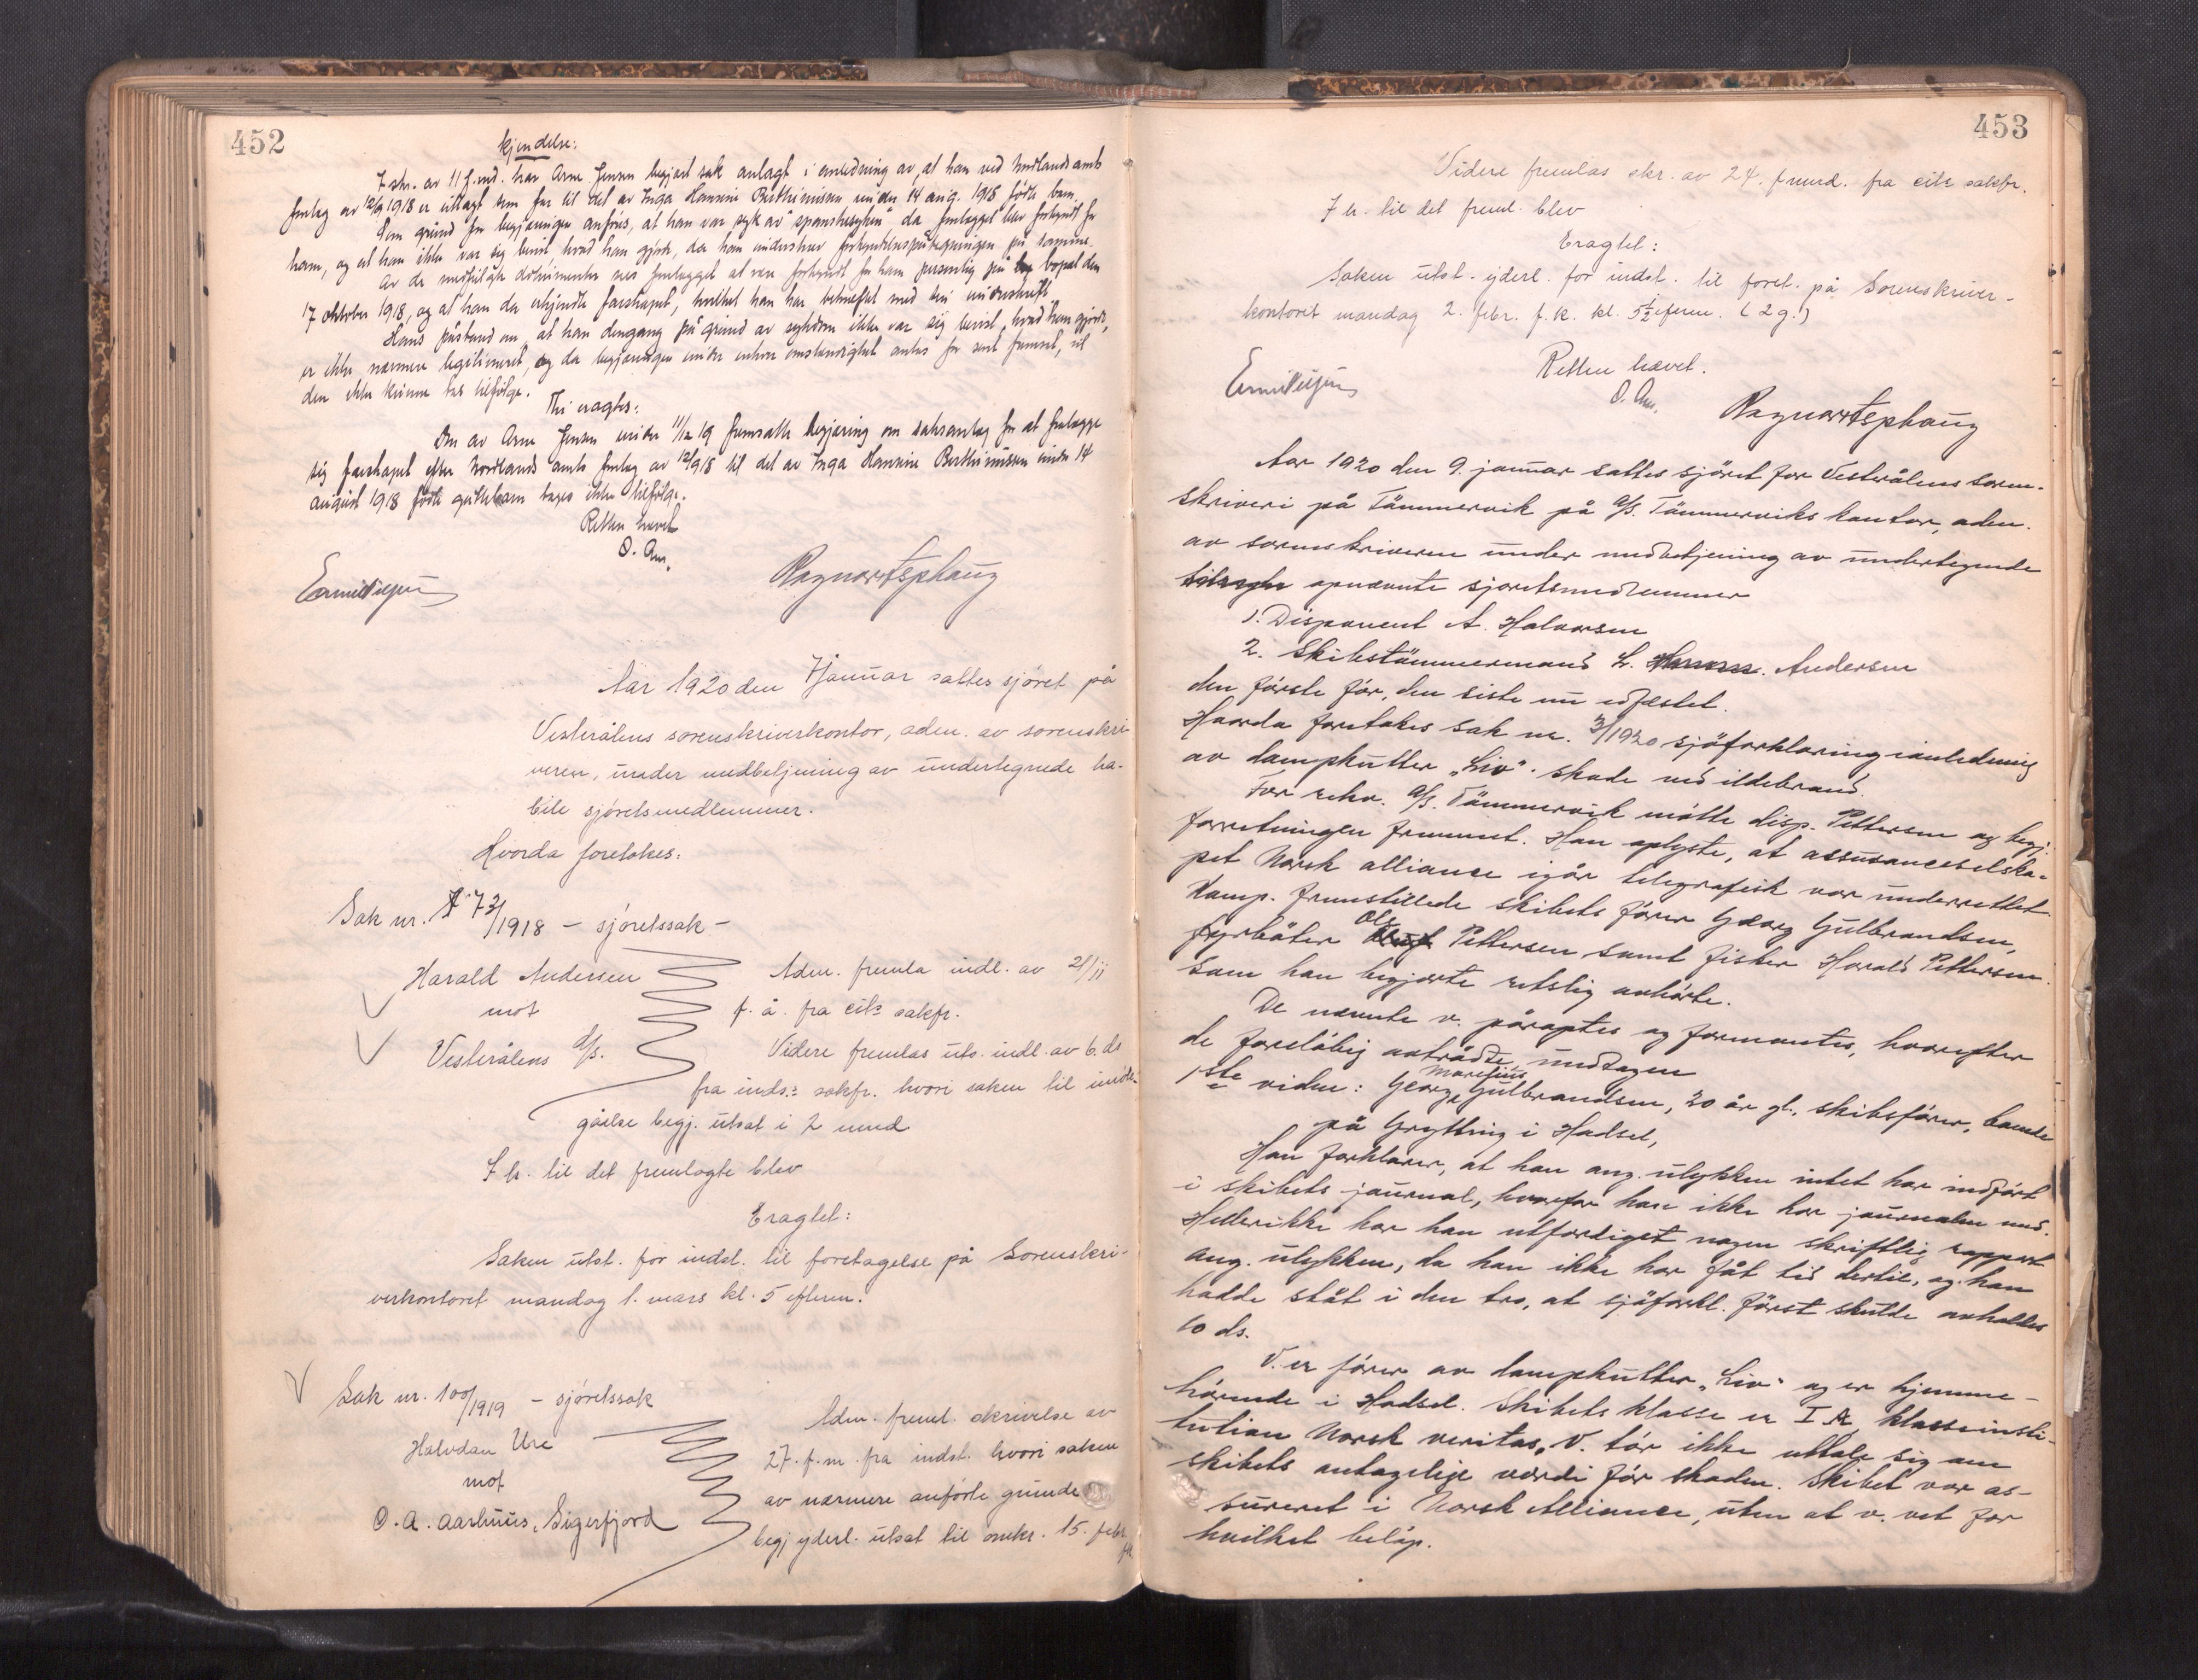 452
kjendelse:
I skr. av 11 f.md. har Arne Jensen begjært sak anlagt i anledning av, at han ved Nordlands amts
forelæg av 12/9 1918 er utlagt som far til det av Inga Hansine Berthinussen under 14 aug. 1918 fødte barn.
Som grund for begjæringen anføres, at han var syk av "spanskesyken" da forelægget blev forkyndt for
ham, og at han ikke var sig bevist, hvad han gjorde, da han underskrev forkyndelsespåtegningen på samme.
Av de medfulgte dokumenter sees forelægget at være forkyndt for ham personlig på bopæl den
17 oktober 1918, og at han da erkjendte farskapet, hvilket han har bekræftet med sin underskrift.
Hans påstand om, at han dengang på grund av sykdom ikke var sig bevist, hvad han gjorde,
er ikke nærmere legitimeret, og da begjæringen under enhver omstændighet antas for sent fremsat, vil
den ikke kunne tas tilfølge.
Thi eragtes:
Den av Arne Jensen under 11/12 19 fremsatte begjæring om saksanlæg for at fralægge
sig farskapet efter Nordlands amts forelæg av 12/9 18 til det av Inga Hansine Berthinussen under 14
august 1918 fødte guttebarn tages ikke tilfølge.
Retten hævet
O. Aus.
Emil Nilsen Ragnar Tsphaug
Aar 1920 den 7 januar sattes sjøret på
Vesterålens sorenskriverkontor, adm. av sorenskri-
veren, under medbetjening av undertegnede ha-
bile sjøretsmedlemmer.
Hvorda foretokes:
Sak nr. 73/1918 – sjøretssak –
Harald Andersen
mot
Vesterålens A/S.
Adm. fremla indl. av 21/11
f. å. fra cit.s sakfr.
Videre fremlas uts. indl. av 6. ds
fra inds.s sakfr. hvori saken til inde-
gåelse begj. utsat i 2 mnd
I h. til det fremlagte blev
Eragtet:
Saken utst. for indst. til foretagelse på Sorenskri-
verkontoret mandag 1. mars kl. 5 efterm.
Sak nr. 100/1919 – sjøretssak
Halvdan Ure
mot
O. A. Aarhuus, Sigerfjord
Adm. freml. skrivelse av
27. f.m. fra indst. hvori saken
av nærmere anførte grunde
begj yderl. utsat til omkr. 15. febr.
fk
453
Videre fremlas skr. av 24. f mnd. fra cits sakfr.
I h. til det freml. blev
Eragtet:
Saken utst. yderl. for indst. til foret. på Sorenskriver-
kontoret mandag 2. febr. f. k. kl. 5½ efterm. (2 g.)
Retten hævet.
O. Aus.
Emil Nilsen Ragnar Tsphaug
Aar 1920 den 9. januar sattes sjöret for Vesterålens soren-
skriveri på Tömmervik på A/S. Tömmerviks kontor, adm.
av sorenskriveren under medbetjening av undertegnede
opnævnte sjøretsmedlemmer
1. Disponent A. Halvorsen
2. Skibstömmermand L. Andersen
den første før, den siste nu edfæstet.
Hvorda foretokes sak nr. 3/1920 sjöforklaring i anledning
av dampkutter "Liv"s skade ved ildebrand.
For rekv. A/S. Tömmervik mötte disp. Pettersen og begj.
forretningen fremmet. Han oplyste, at assuranceselska-
pet Norsk alliance igår telegrafisk var underrettet.
Komp. fremstillede skibets fører Georg Gulbrandsen,
fyrböter Ole Pettersen samt fisker Harald Pettersen
som han begjærte retslig avhörte.
De nævnte v. påroptes og formantes, hvorefter
de foreløbig avtrådte undtagen
1ste vidne: Georg Marelius Gulbrandsen, 30 år gl., skibsfører, boende
på Grytting i Hadsel,
Han forklarer, at han ang. ulykken intet har indført
i skibets journal, hvorfor han ikke har journalen med.
Hellerikke har han utfærdiget nogen skriftlig rapport
ang. ulykken, da han ikke har fåt tid dertil, og han
hadde ståt i den tro, at sjöforkl. først skulde avholdes
10 ds.
V. er fører av dampkutter "Liv" og er hjemme-
hørende i Hadsel. Skibets klasse er I A klasseinsti-
tution Norsk veritas. V. tör ikke uttale sig om
skibets antagelige værdi før skaden. Skibet var as-
sureret i Norsk Alliance, uten at v. vet for
hvilket beløp.